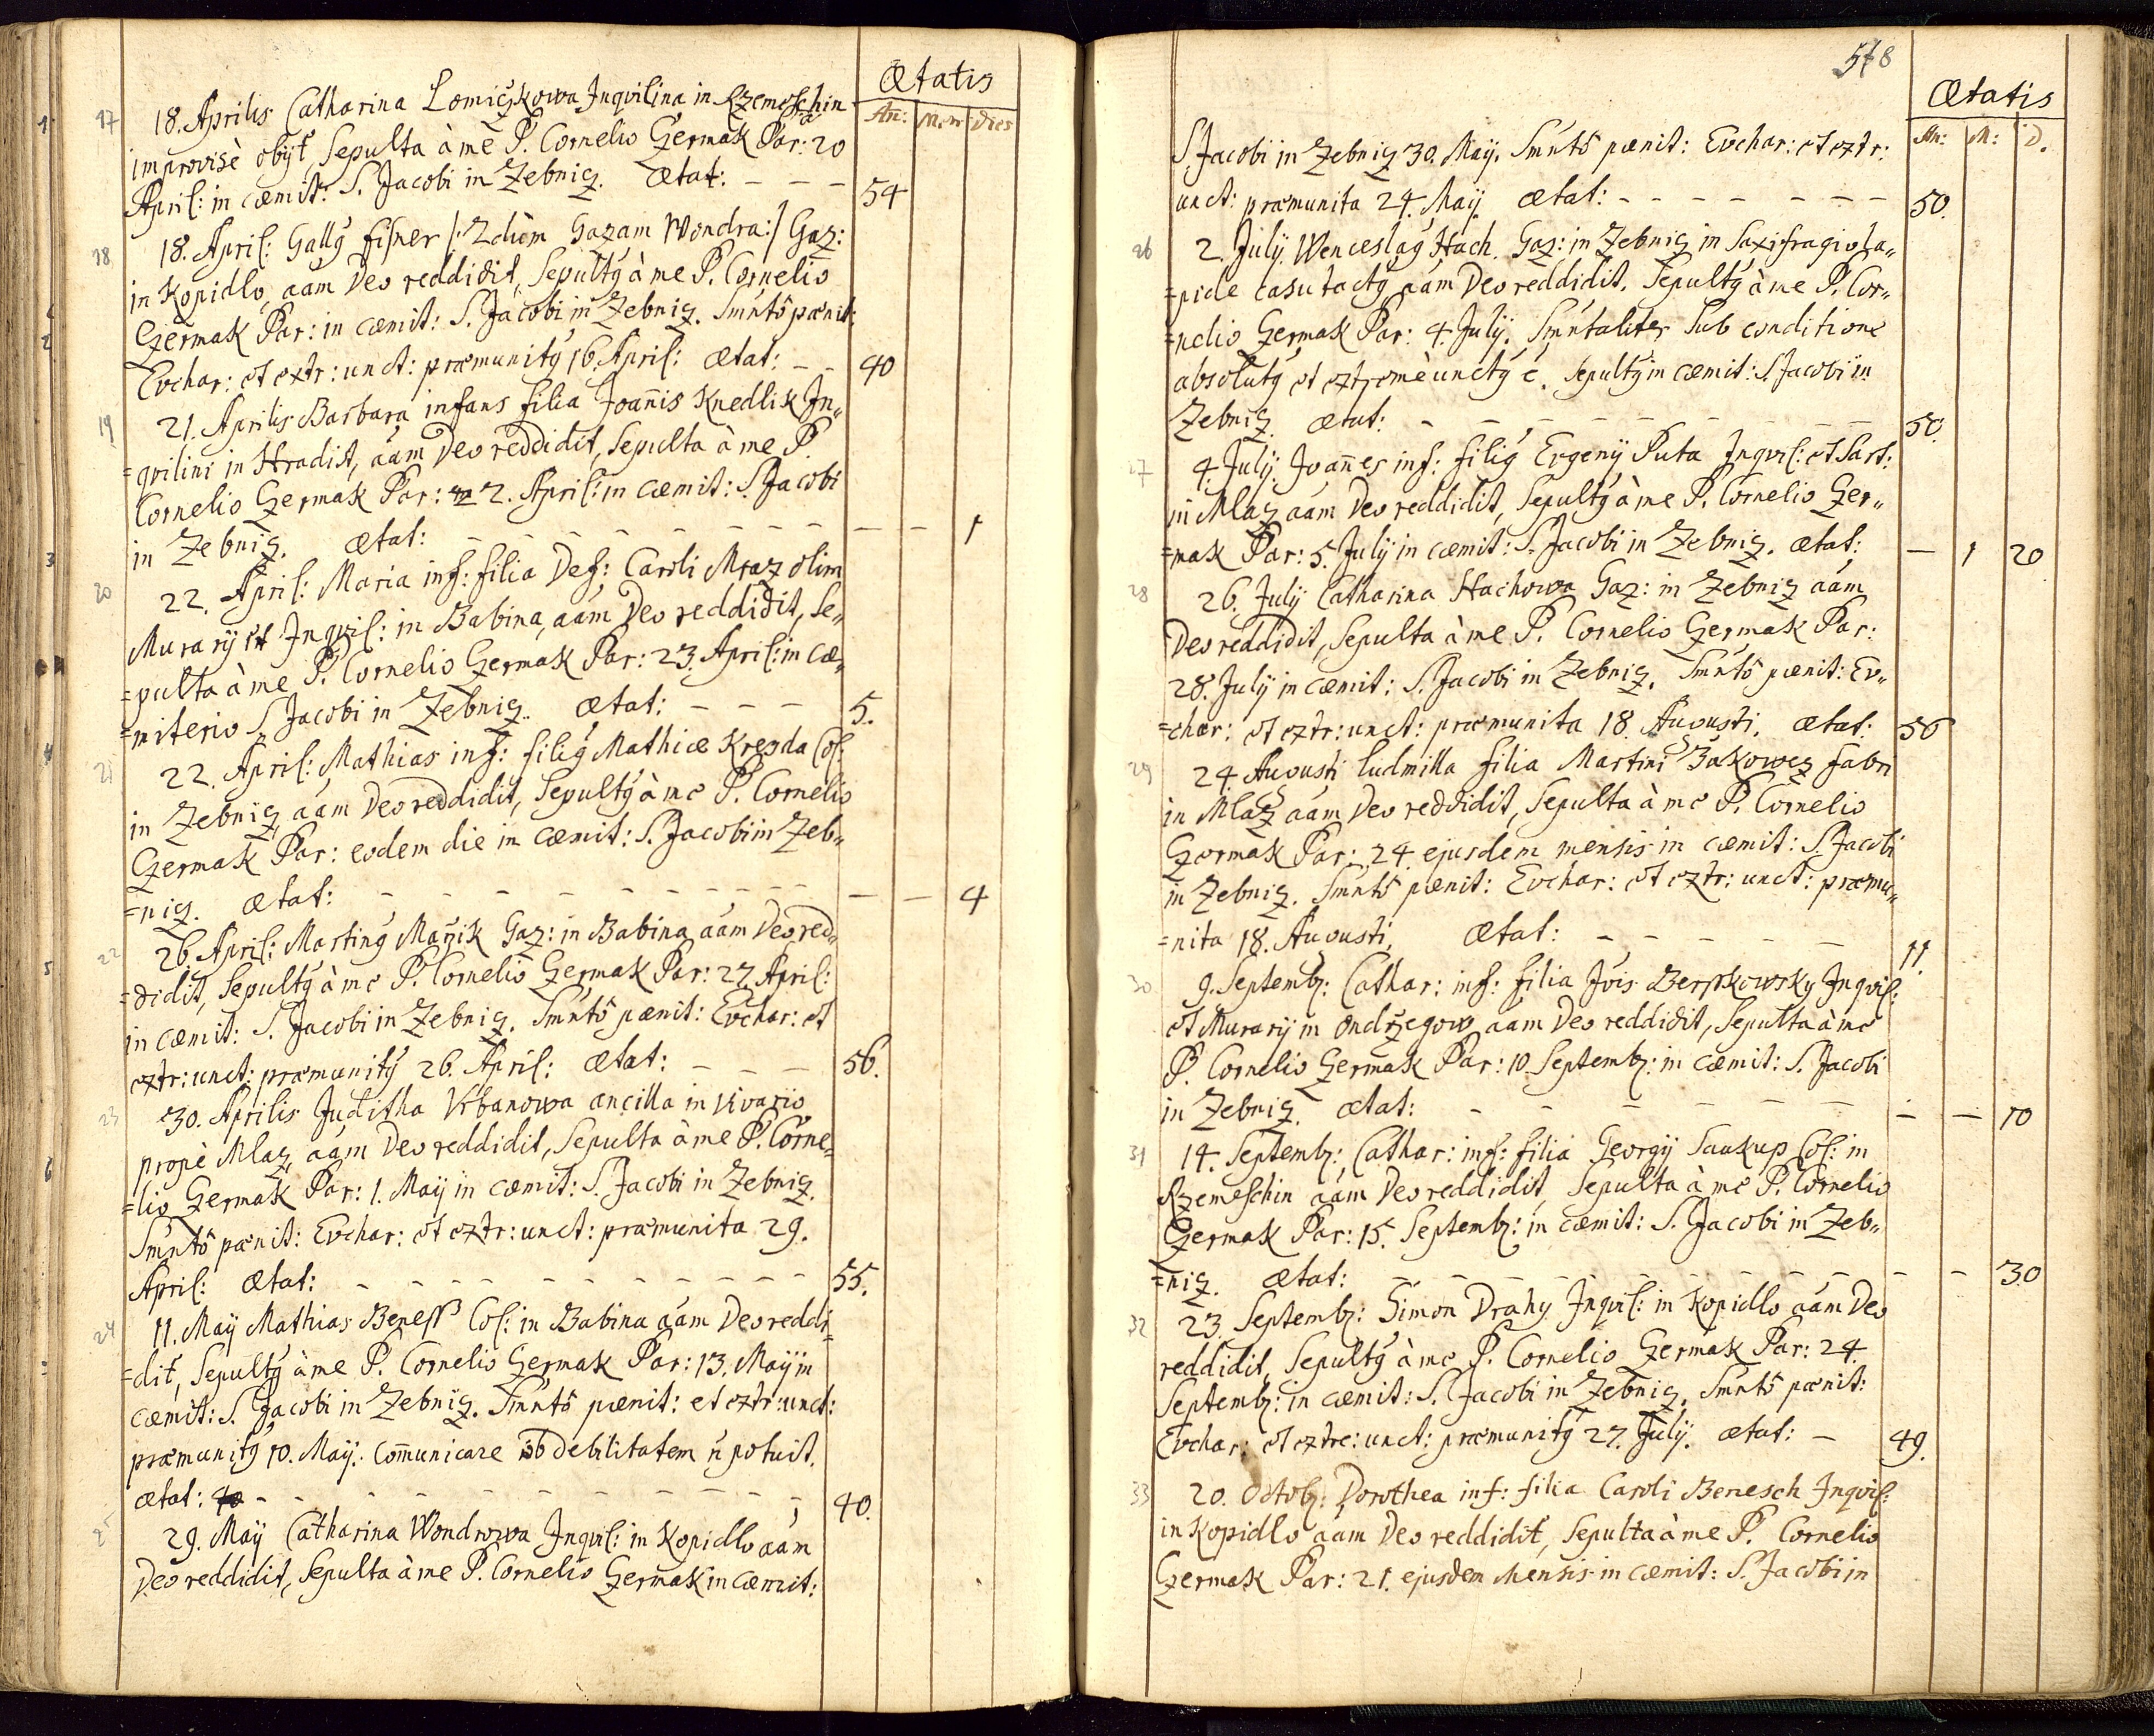 Ætatis
An: Men: Dies
17 18. Aprilis Catharina Lomiczkowa Inqvilina in Rzemeschin
improvisè obijt, Sepulta à me P. Cornelio Czermak Par: 20
April: in cæmit: S. Jacobi in Zebnicz. Ætat: - - - 54
18 18. April: Gallꝰ Fisner /: Zdiim Gazam Wondra:/ Gaz:
in Kopidlo, aãm Deo reddidit, Sepultꝰ à me P. Cornelio
Czermak Par: in cæmit: S. Jacobi in Zebnicz. Smntõ pænit:
Evchar: et extr: unct: præmunitꝰ 16. April: Ætat: - - 40
19 21. Aprilis Barbara infans filia Joannis Knedlik In„
=qvilini in Hradist, aãm Deo reddidit, Sepulta à me P.
Cornelio Czermak Par: 22. April: in cæmit: S. Jacobi
in Zebnicz. Ætat: - - - - - - - - - 1
20 22. April: Maria inf: filia Def: Caroli Mraz olim
Murarij et Inqvil: in Babina, aãm Deo reddidit, Se„
=pulta à me P. Cornelio Czermak Par: 23. April: in cæ„
=miterio S. Jacobi in Zebnicz. Ætat: - - - 5.
21 22. April: Mathias inf: filiꝰ Mathiæ Kregda Col:
in Zebnicz, aãm Deo reddidit, Sepultꝰ à me P. Cornelio
Czermak Par: eodem die in cæmit: S. Jacobi in Zeb„
=nicz. Ætat: - - - - - - - - - - 4
22 26. April: Martinꝰ Marzik Gaz: in Babina aãm Deo red„
=didit, Sepultꝰ à me P. Cornelio Czermak Par: 27. April:
in cæmit: S. Jacobi in Zebnicz. Smntõ pænit: Evchar: et
extr: unct: præmunitꝰ 26. April: Ætat: - - - 56.
23 30. Aprilis Juditha Vrbanowa ancilla in Vivario
propè Mlaz, aãm Deo reddidit, Sepulta à me P. Corne„
=lio Czermak Par: 1. Maij in cæmit: S. Jacobi in Zebnicz.
Smntõ pænit: Evchar: et extr: unct: præmunita 29.
April: Ætat: - - - - - - - - - - 55.
24 11. Maij Mathias Beness Col: in Babina aãm Deo reddi„
=dit, Sepultꝰ à me P. Cornelio Czermak Par: 13. Maij in
cæmit: S. Jacobi in Zebnicz. Smntõ pænit: et extr: unct:
præmunitꝰ 10. Maij. Communicare ob debilitatem ñ potuit.
ætat: - - - - - - - - - - 40.
25 29. Maij Catharina Wondrowa Inqvil: in Kopidlo aãm
Deo reddidit, Sepulta à me P. Cornelio Czermak in cæmit:
Ætatis
An: M: D.
S. Jacobi in Zebnicz 30. Maij. Smntõ pænit: Evchar: et extr:
unct: præmunita 24. Maij. Ætat: - - - - - - - 50.
26 2. Julij. Wenceslaꝰ Hach. Gaz: in Zebnicz in Saxifragio la„
=pide casu tactꝰ, aãm Deo reddidit. Sepultꝰ à me P. Cor„
=nelio Czermak Par: 4. Julij. Smntaliter Sub conditione
absolutꝰ et extremè unctꝰ ẽ. Sepultꝰ in cæmit: S. Jacobi in
Zebnicz. Ætat: - - - - - - - - 50.
27 4. Julij. Joannes inf: filiꝰ Evgenij Puta Inqvil: et Sart:
in Mlaz aãm Deo reddidit, Sepultꝰ à me P. Cornelio Czer„
=mak Par: 5. Julij in cæmit: S. Jacobi in Zebnicz. Ætat: - 1 20
28 26. Julij Catharina Hachowa Gaz: in Zebnicz aãm
Deo reddidit, Sepulta à me P. Cornelio Czermak Par:
28. Julij in cæmit: S. Jacobi in Zebnicz. Smntõ pænit: Ev„
=char: et extr: unct: præmunita 18. Augusti. Ætat: 56
29 24. Augusti Ludmilla filia Martini Bakowez fabri
in Mlaz aãm Deo reddidit, Sepulta à me P. Cornelio
Czermak Par: 24. ejusdem mensis in cæmit: S. Jacobi
in Zebnicz. Smntõ pænit: Evchar: et extr: unct: præmu„
=nita 18. Augusti. Ætat: - - - - - 11.
30 9. Septemb: Cathar: inf: filia Jõis Berskowsky Inqvil:
et Murarij in Ondrzegow aãm Deo reddidit, Sepulta à me
P. Cornelio Czermak Par: 10. Septemb: in cæmit: S. Jacobi
in Zebnicz. Ætat: - - - - - - - - - 10
31 14. Septemb: Cathar: inf: filia Georgij Saukup Col: in
Rzemeschin aãm Deo reddidit, Sepulta à me P. Cornelio
Czermak Par: 15. Septemb: in cæmit: S. Jacobi in Zeb„
=nicz. Ætat: - - - - - - - - - - - 30
32 23. Septemb: Simon Drahy Inqvil: in Kopidlo aãm Deo
reddidit, Sepultꝰ à me P. Cornelio Czermak Par: 24.
Septemb: in cæmit: S. Jacobi in Zebnicz. Smntõ pænit:
Evchar: et extre: unct: præmunitꝰ 27. Julij. Ætat: - 49.
33 20. Octob: Dorothea inf: filia Caroli Benesch Inqvil:
in Kopidlo aãm Deo reddidit, Sepulta à me P. Cornelio
Czermak Par: 21. ejusdem Mensis in cæmit: S. Jacobi in